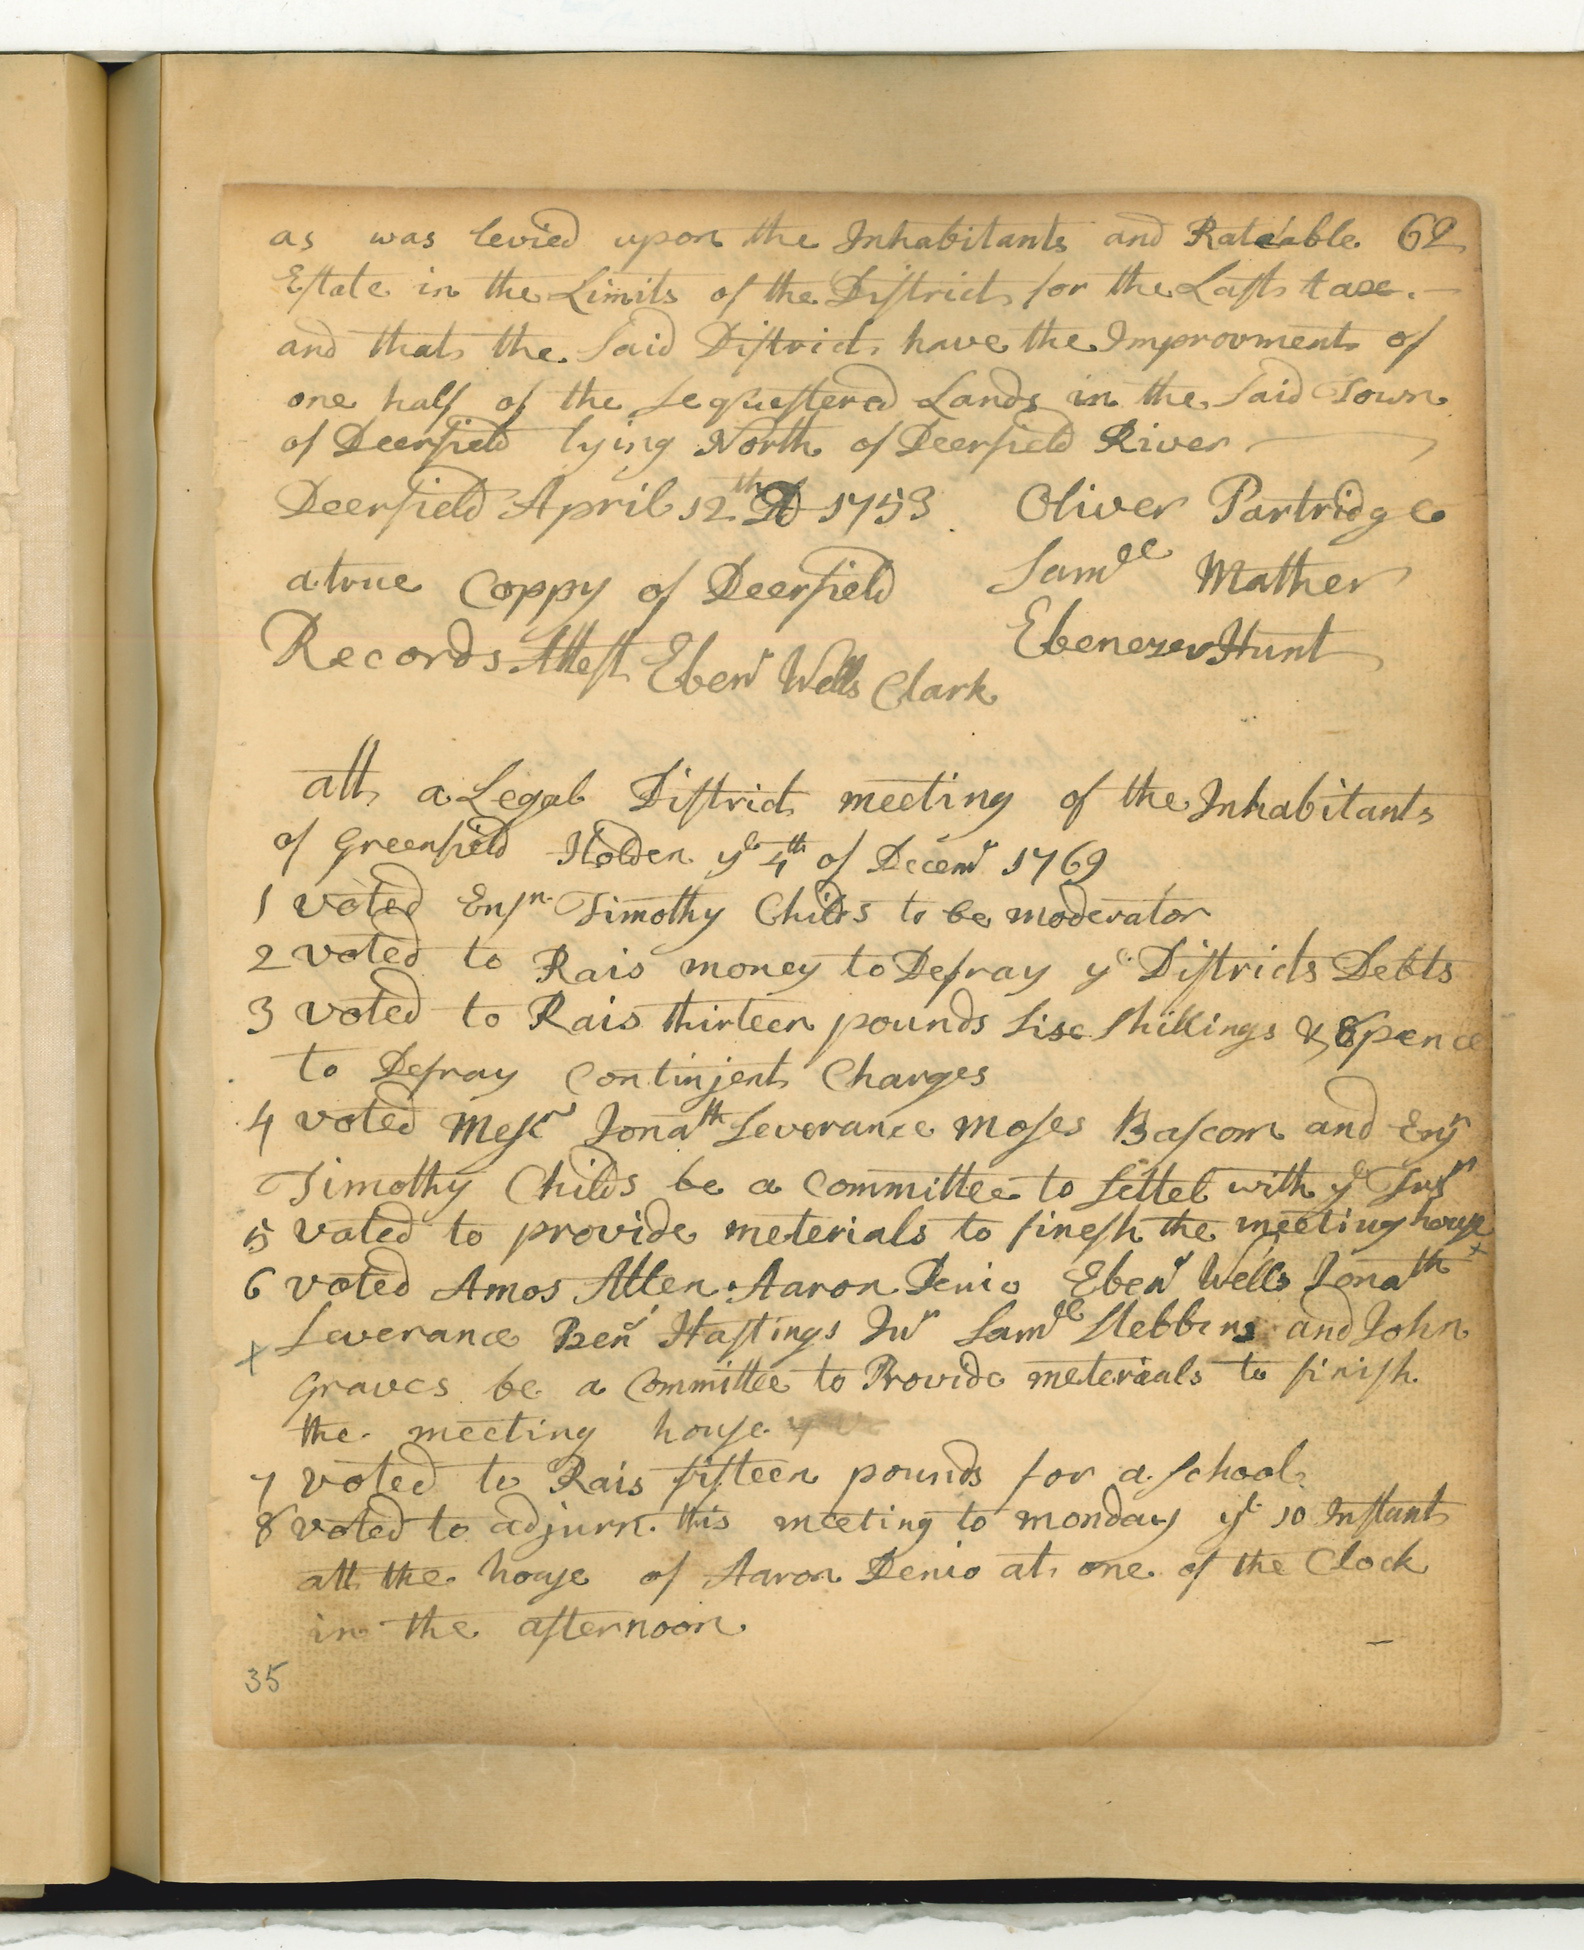 as was levied upon the Inhabitants and Rateable 62
Estate in the Limits of the District for the Last taxe.
and that the Said District have the Improvment of
one half of the Sequestered Lands in the Said Town
of Deerfield lying North of Deerfield River
Deerfield April 12th AD 1753 Oliver Partridge
a true Coppy of Deerfield Samll Mather
Records Attest Ebenr Wells Clark Ebenezer Hunt
att a Legal District meeting of the Inhabitants
of Greenfield Holden ye 4th of Decemr 1769
1 voted Ensn Timothy Childs to be moderator
2 voted to Rais money to Defray ye Districts Debts
3 voted to Rais thirteen pounds Six Shillings & 8 pence
to Defray Continjent Charges
4 voted Messr Jonath Severance Moses Bascom and Ensn
Timothy Childs be a Committee to Settel with ye Tresr
5 voted to provide meterials to finesh the meeting house
6 voted Amos Allen Aaron Denio Ebenr Wells Jonath +
+ Severance Benj Hastings Jur Samll Stebbins and John
Graves be a Committee to Provide meterials to finish
the meeting house
7 voted to Rais fifteen pounds for a School
8 voted to adjurn this meeting to monday ye 10 Instant
att the house of Aaron Denio at one of the Clock
in the afternoon
35